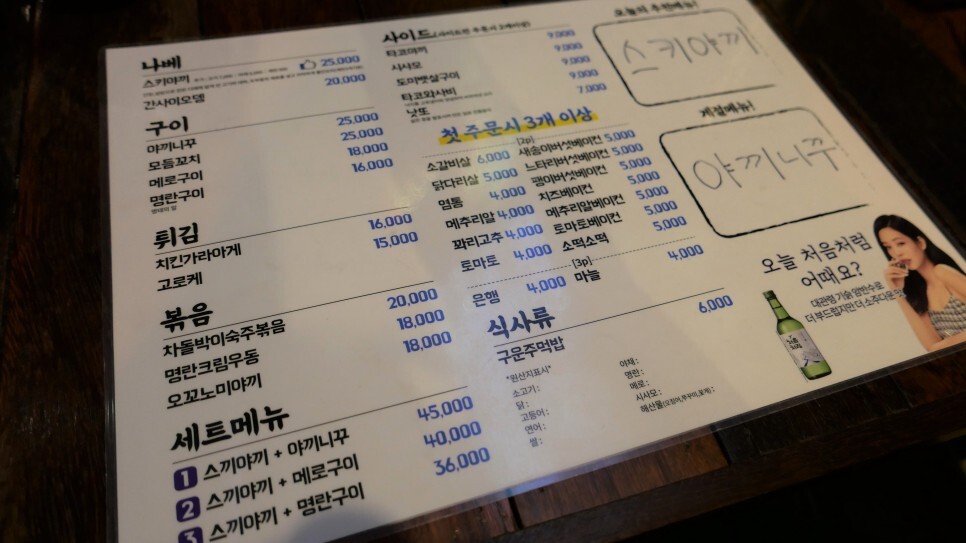 나베
스키야끼 25,000
간사이오뎅 20,000
구이
야끼니꾸 25,000
모듬꼬치 25,000
메로구이 18,000
명란구이 16,000
튀김
치킨가라아게 16,000
고로케 15,000
볶음
차돌박이숙주볶음 20,000
명란크림우동 18,000
오꼬노미야끼 18,000
세트메뉴
1 스끼야끼 + 야끼니꾸 45,000
2 스끼야끼 + 메로구이 40,000
3 스끼야끼 + 명란구이 36,000
사이드
타코야끼 9,000
시사모 9,000
도미뱃살구이 9,000
타코와사비 9,000
낫또 7,000
첫 주문시 3개 이상
[2p]
소갈비살 6,000 새송이버섯베이컨 5,000
닭다리살 5,000 느타리버섯베이컨 5,000
염통 4,000 팽이버섯베이컨 5,000
메추리알 4,000 치즈베이컨 5,000
꽈리고추 4,000 메추리알베이컨 5,000
토마토 4,000 토마토베이컨 5,000
소떡소떡 5,000
[3p]
은행 4,000 마늘 4,000
식사류
구운주먹밥 6,000
*원산지표시*
소고기:
닭:
고등어:
연어:
쌀:
야채:
명란:
메로:
시사모:
해산물(오징어,쭈꾸미,꽃게):
오늘의 추천메뉴!
스키야끼
계절메뉴!
야끼니꾸
오늘 처음처럼
어때요?
대관령 기슭 암반수로
더 부드럽지만 더 소주다운